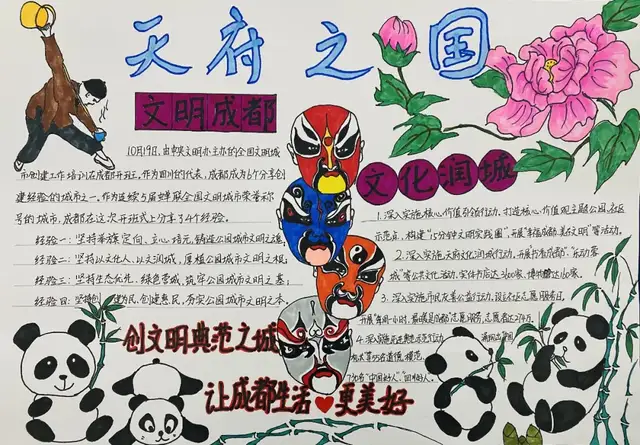 天府之国
文明成都
10月19日,由中央文明办主办的全国文明城
市创建工作培训在成都开班。作为四川的代表,成都成为6个分享创
建经验的城市之一。作为连续5届蝉联全国文明城市荣誉称
号的城市,成都在这次开班式上分享了4个经验。
经验一:坚持举旗定向,立心培元,铸造公园城市文明之魂
经验二:坚持以文化人,以文润城,厚植公园城市文明之根
经验三:坚持生态优先,绿色营城,筑牢公园城市文明之基
经验四:坚持创建为民,创建惠民,夯实公园城市文明之本
创文明典范之城
让成都生活更美好
文化润城
1.深入实施核心价值引领行动,打造核心价值观主题公园、社区
示范点,构建"15分钟文明实践圈",开展"幸福成都美在文明"等活动。
2.深入实施天府文化润城行动,开展书香成都、"乐动蓉
城"等公共文化活动,实体书店达3600家,博物馆达160家。
3.深入实施市民友善公益行动,设立社区志愿服务日,
4.深入实施